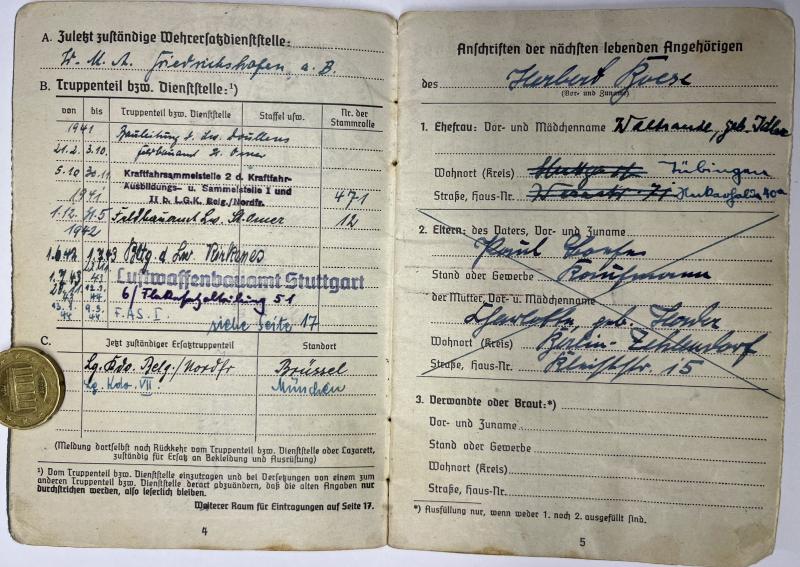 A. Zuletzt zuständige Wehrersatzdienststelle:
W. M. A. Friedrichshafen, a. B
B. Truppenteil bzw. Dienststelle:¹)
von bis Truppenteil bzw. Dienststelle Staffel usw. Nr. der Stammrolle
1941
Bauleitung d. Lw. Doullens
21.2. 3.10. Feldbauamt St. Omer
5.10 30.11. Kraftfahrsammelstelle 2 d. Kraftfahr-
Ausbildungs- u. Sammelstelle I und
1941 II b. L.G.K. Belg./Nordfr. 471
1.12. Feldbauamt Lw. St. Omer 12
1942
1.7.43 d. Lw. Kirkenes
1.7.43 Luftwaffenbauamt Stuttgart
6/ 51
F.A.S. I
siehe Seite 17
C. Jetzt zuständiger Ersatztruppenteil Standort
Lg. Kdo. Belg./Nordfr Brüssel
Lg. Kdo. VII München
(Meldung dortselbst nach Rückkehr vom Truppenteil bzw. Dienststelle oder Lazarett,
zuständig für Ersatz an Bekleidung und Ausrüstung)
¹) Vom Truppenteil bzw. Dienststelle einzutragen und bei Versetzungen von einem zum
anderen Truppenteil bzw. Dienststelle derart abzuändern, daß die alten Angaben nur
durchstrichen werden, also leserlich bleiben.
Weiterer Raum für Eintragungen auf Seite 17.
4
Anschriften der nächsten lebenden Angehörigen
des Herbert
(Vor- und Zuname)
1. Ehefrau: Vor- und Mädchenname geb.
Wohnort (Kreis) Stuttgart Tübingen
Straße, Haus-Nr. 71 40a
2. Eltern: des Vaters, Vor- und Zuname
Paul
Stand oder Gewerbe Kaufmann
der Mutter, Vor- u. Mädchenname
Charlotte, geb.
Wohnort (Kreis) Berlin-Zehlendorf
Straße, Haus-Nr. Kleiststr 15
3. Verwandte oder Braut:*)
Vor- und Zuname
Stand oder Gewerbe
Wohnort (Kreis)
Straße, Haus-Nr.
*) Ausfüllung nur, wenn weder 1. noch 2. ausgefüllt sind.
5